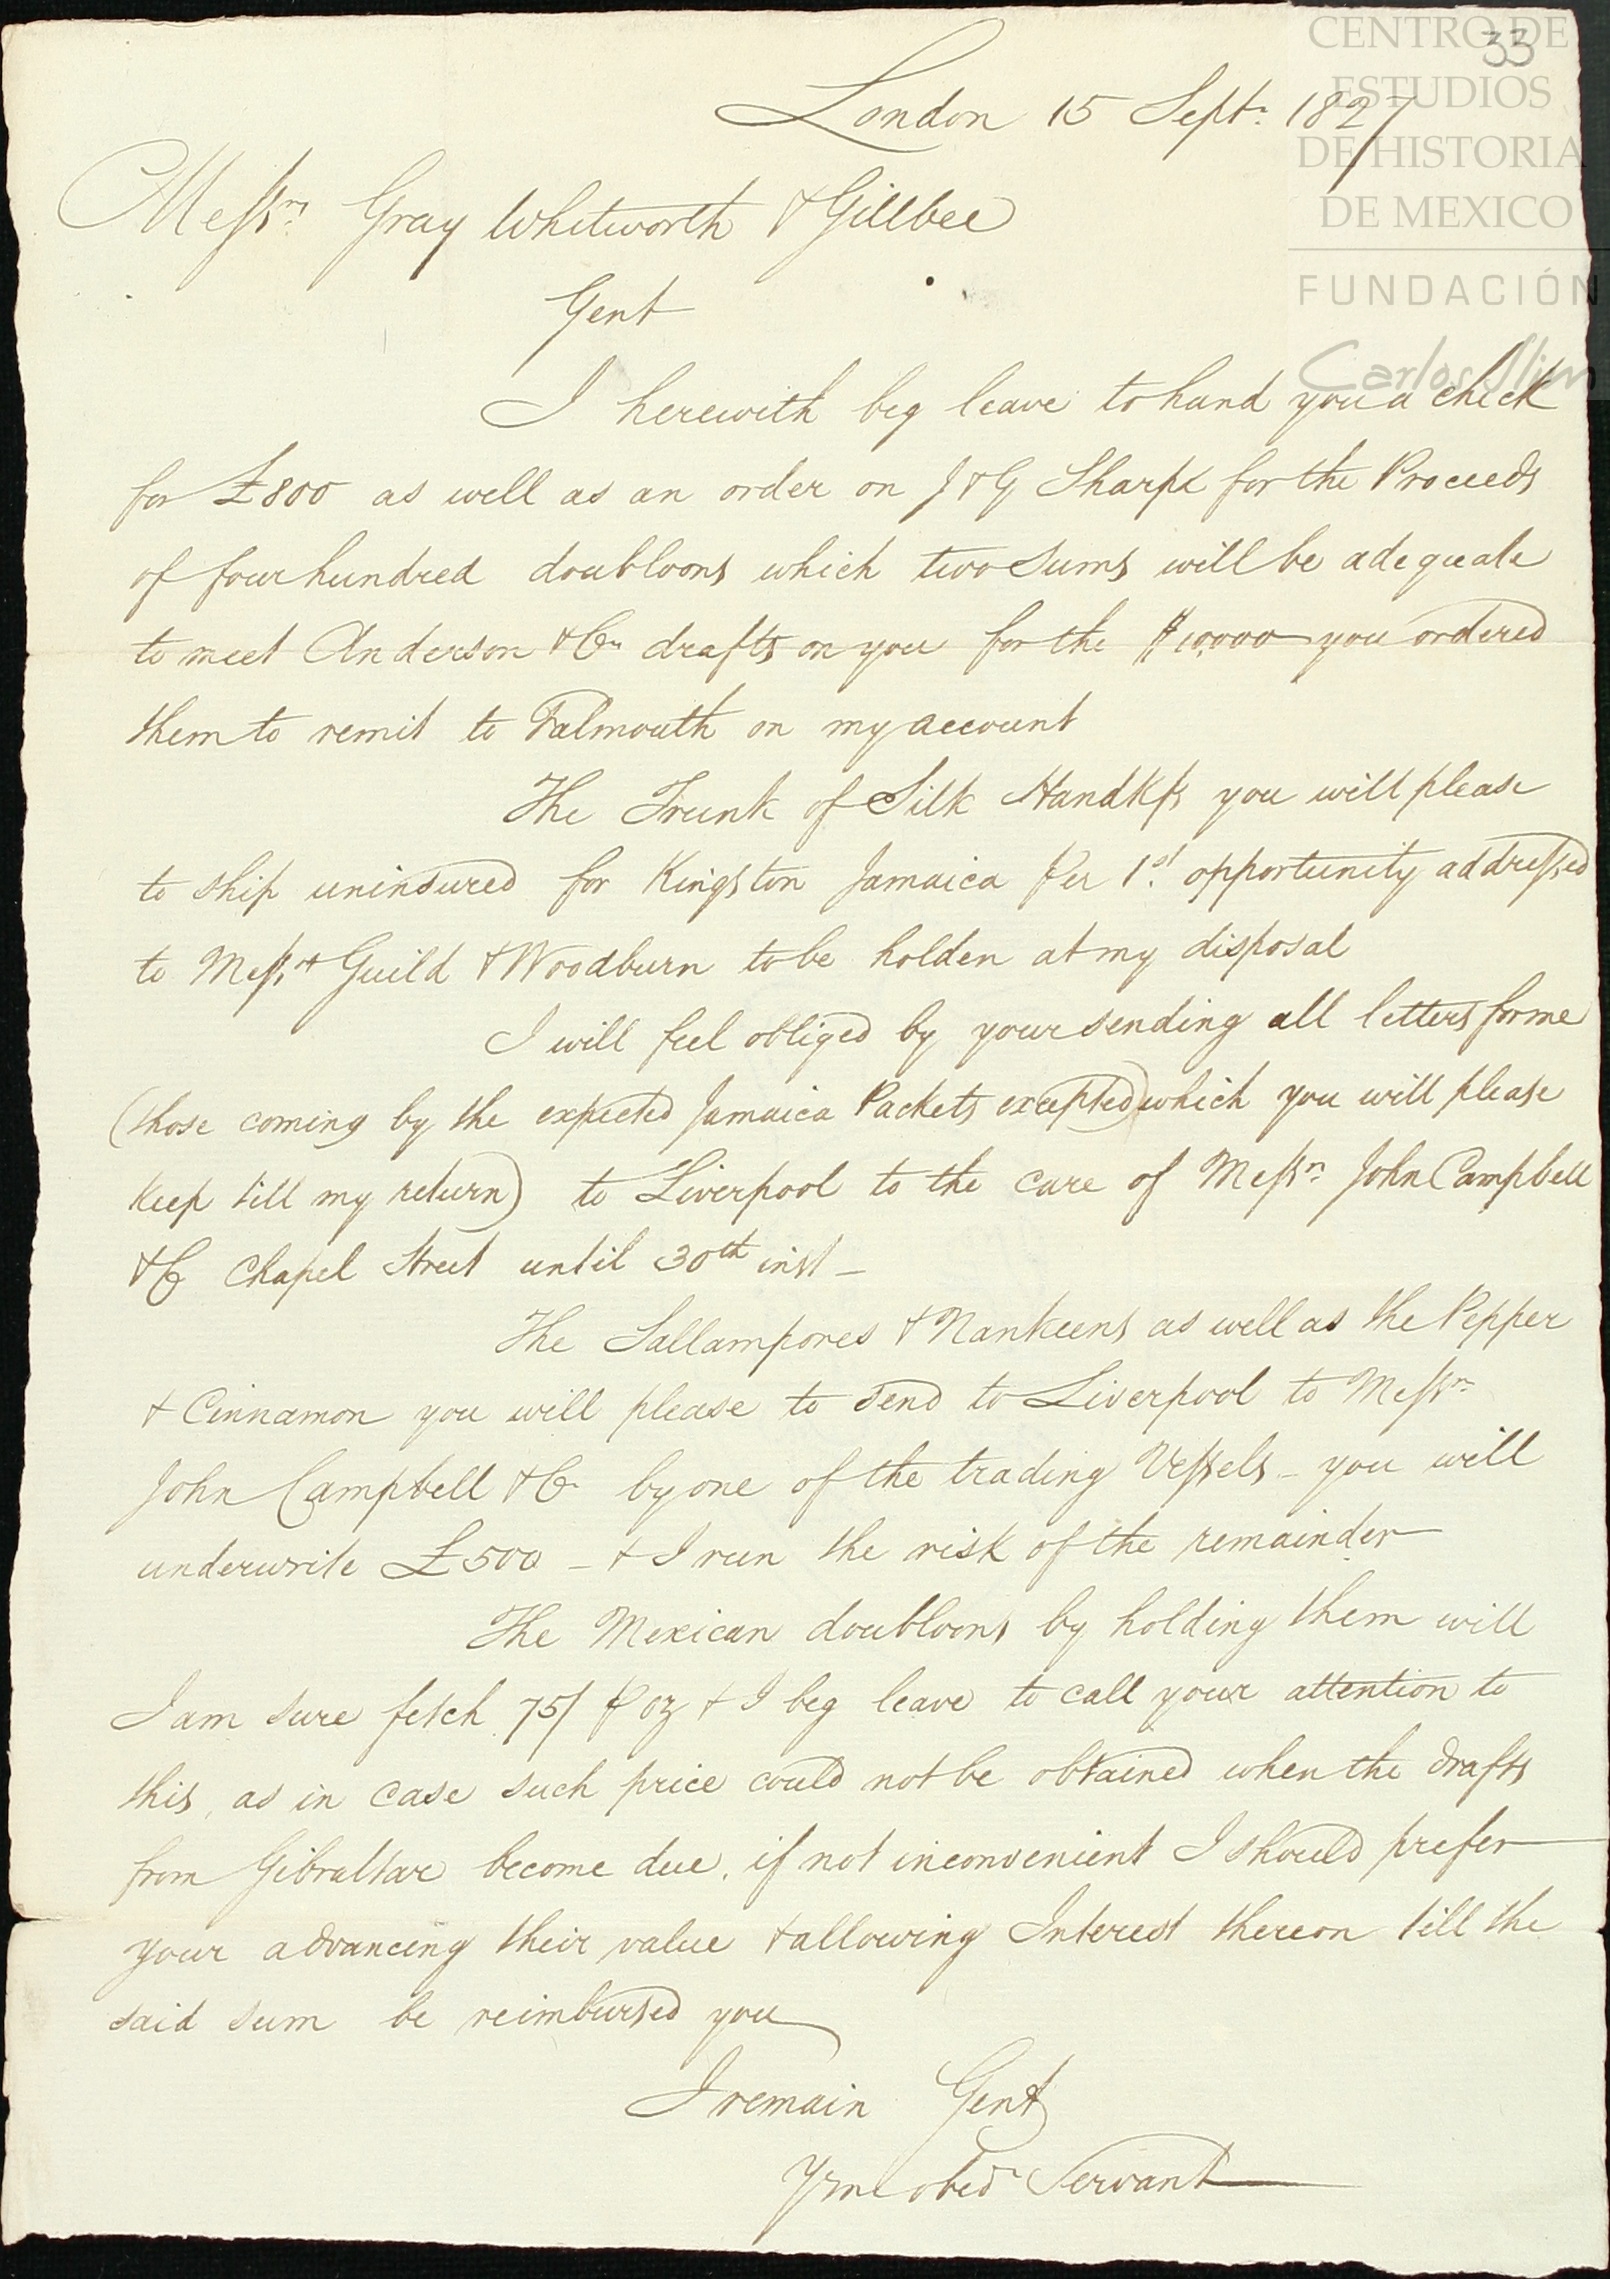 CENTRO DE
ESTUDIOS
DE HISTORIA
DE MEXICO
FUNDACIÓN
Carlos Slim
33
London 15 Septr. 1827
Messrs. Gray Whitworth & Gillbee
Gent
I herewith beg leave to hand you a check
for £800 as well as an order on J & G Sharpe for the Proceeds
of four hundred doubloons which two sums will be adequate
to meet Anderson & Co drafts on you for the $10,000 you ordered
them to remit to Falmouth on my account
The Trunk of Silk Handkfs you will please
to ship uninsured for Kingston Jamaica Per 1st. opportunity addressed
to Messrs Guild & Woodburn to be holden at my disposal
I will feel obliged by your sending all letters for me
(those coming by the expected Jamaica Packets excepted) which you will please
keep till my return) to Liverpool to the care of Messrs. John Campbell
& Co Chapel Street until 30th inst –
The Sallampores & Nankeens as well as the Pepper
& Cinnamon you will please to send to Liverpool to Messrs.
John Campbell & Co by one of the trading Vessels – you will
underwrite £500 – & I run the risk of the remainder
The Mexican doubloons by holding them will
I am sure fetch 75/ P oz & I beg leave to call your attention to
this, as in case such price could not be obtained when the drafts
from Gibraltar become due, if not inconvenient I should prefer
your advancing their value & allowing Interest thereon till the
said sum be reimbursed you
I remain Gent
obed Servant